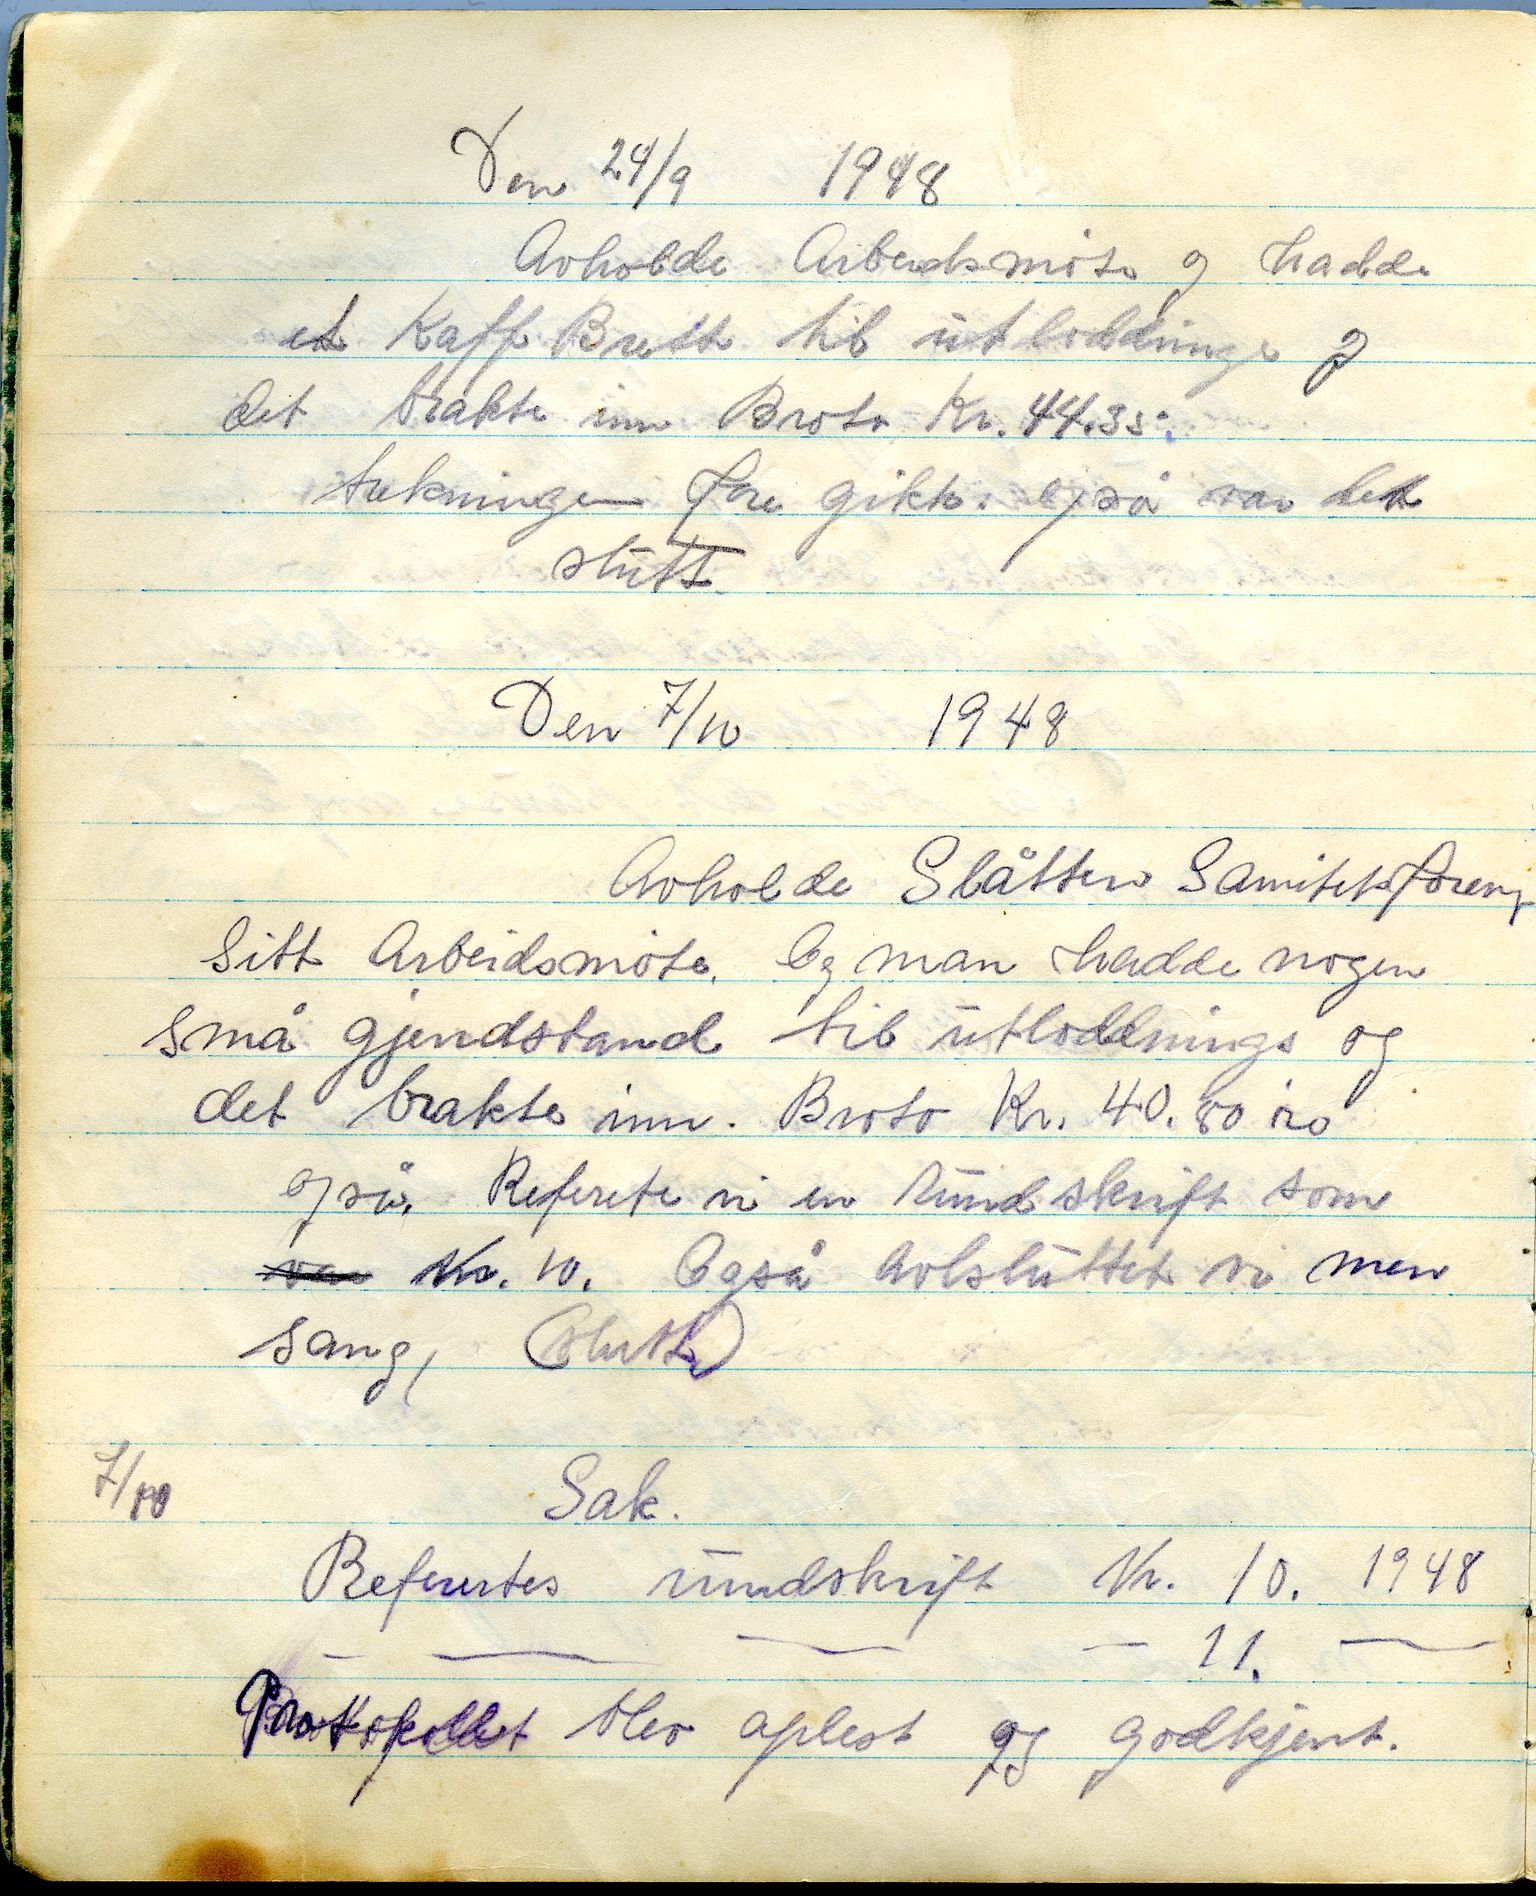 Den 24/9 1948
Avholde Arbeidsmöte og hadde
et Kaffe Brett til utloddninge og
det brakte inn Broto Kr. 44.35.
trekningen fore gikk. også var det
slutt.
Den 7/10 1948
Avholde Slåtten Sanitetsforeng
Sitt Arbeidsmöte. Og man hadde nogen
små gjendstand til utloddnings og
det brakte inn. Broto Kr. 40.80 öre
også. Referete vi en rundskrift som
var Nr. 10. Også Avsluttet vi men
sang, (slutt)
7/10 Sak.
Refertes rundskrift Nr. 10. 1948
— — — — 11. —
Prottokollet blev oplest og godkjent.